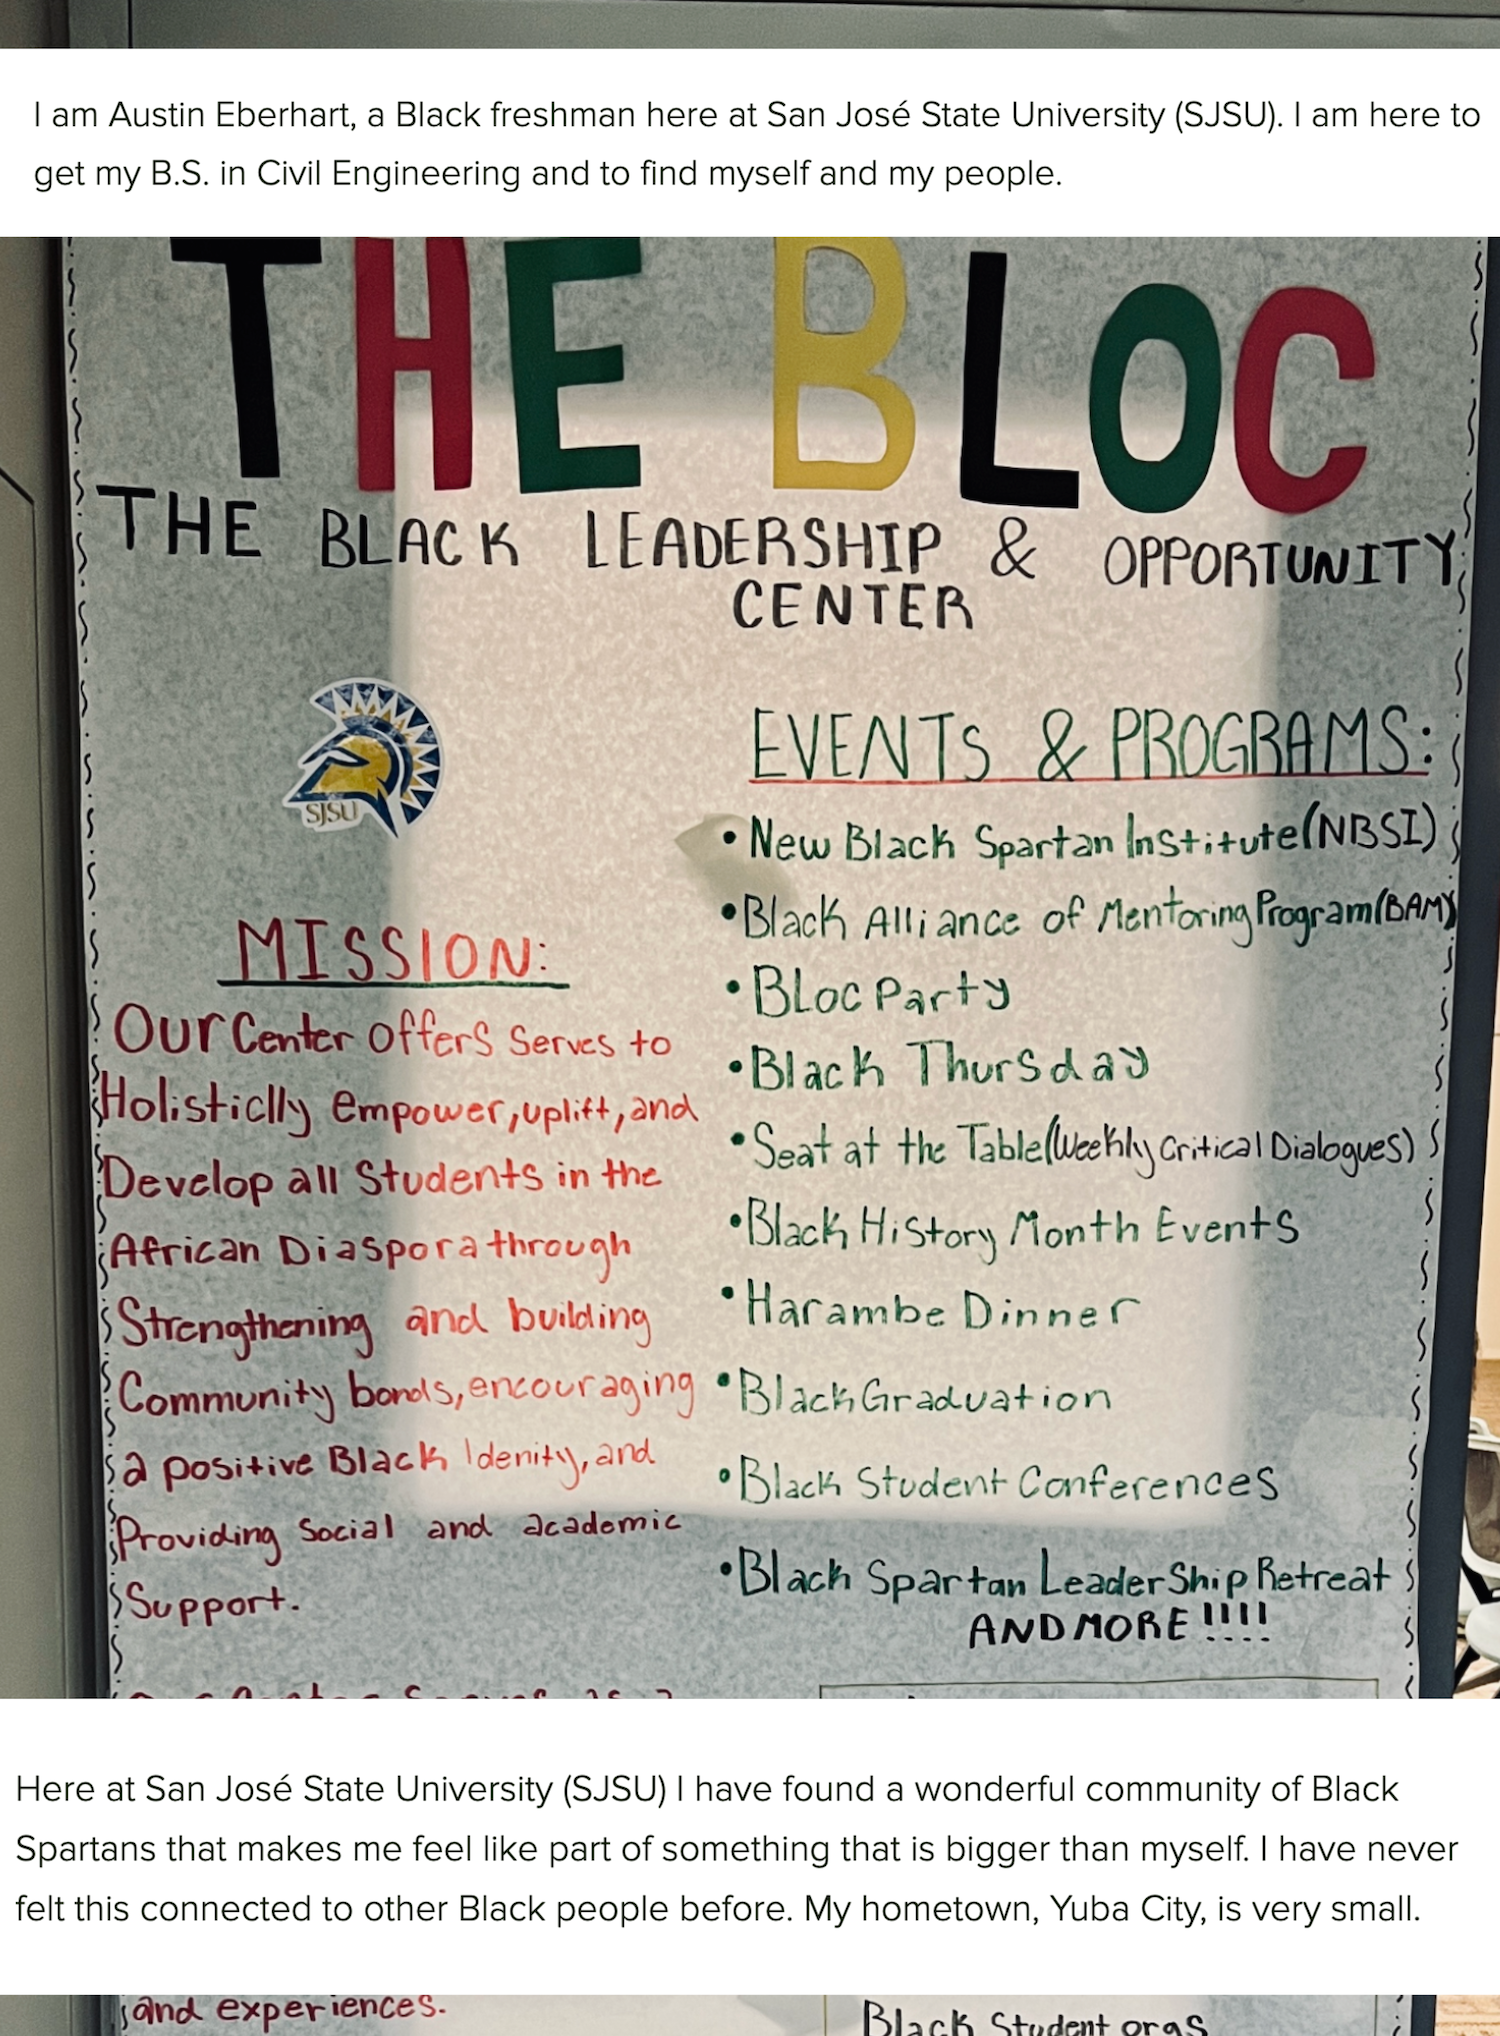 I am Austin Eberhart, a Black freshman here at San José State University (SJSU). I am here to
get my B.S. in Civil Engineering and to find myself and my people.
THE BLOC
THE BLACK LEADERSHIP & OPPORTUNITY
CENTER
SJSU
MISSION:
Our Center offers Serves to
Holisticlly empower, uplift, and
Develop all Students in the
African Diaspora through
Strengthening and building
Community bonds, encouraging
a positive Black Idenity, and
Providing Social and academic
Support.
EVENTS & PROGRAMS:
• New Black Spartan Institute (NBSI)
• Black Alliance of Mentoring Program (BAM)
• Bloc Party
• Black Thursday
• Seat at the Table (Weekly Critical Dialogues)
• Black History Month Events
• Harambe Dinner
• Black Graduation
• Black Student Conferences
• Black Spartan Leadership Retreat
AND MORE !!!!
Here at San José State University (SJSU) I have found a wonderful community of Black
Spartans that makes me feel like part of something that is bigger than myself. I have never
felt this connected to other Black people before. My hometown, Yuba City, is very small.
and experiences.
Black Student orgs